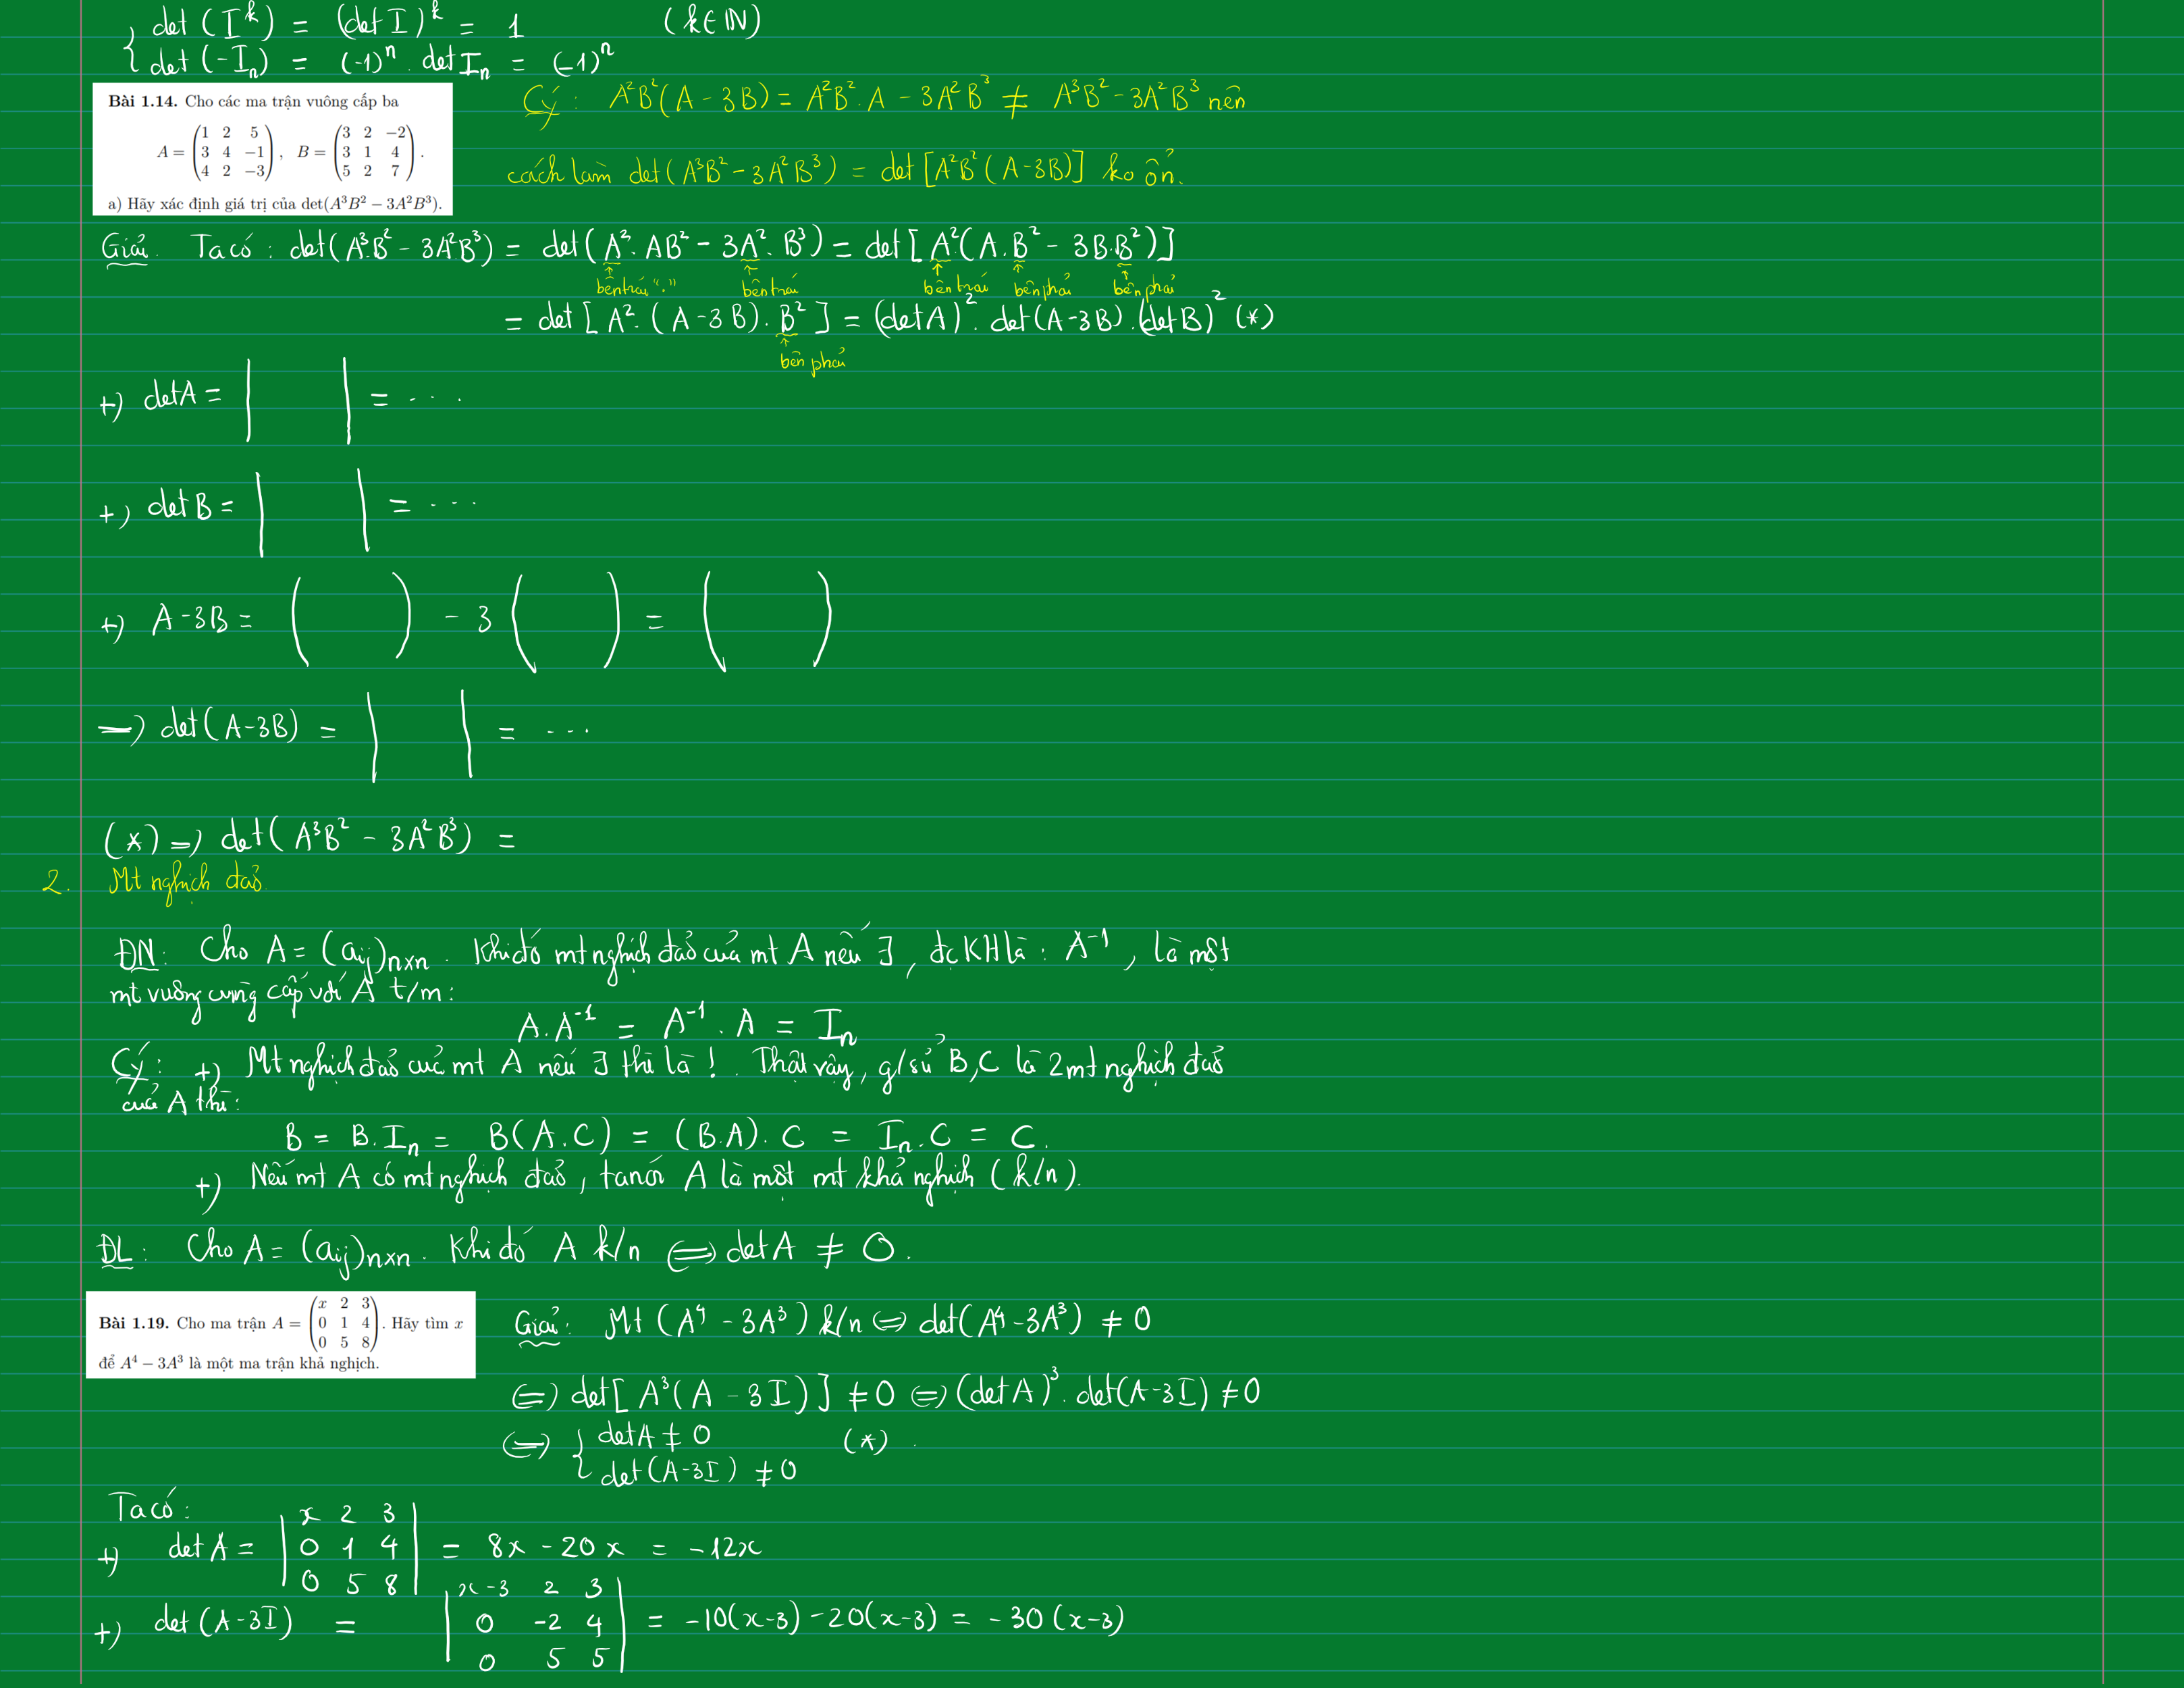 det (I^k) = (det I)^k = 1 (k ∈ ℕ)
det (-I_n) = (-1)^n . det I_n = (-1)^n
Bài 1.14. Cho các ma trận vuông cấp ba
A = (1 2 5; 3 4 −1; 4 2 −3), B = (3 2 −2; 3 1 4; 5 2 7).
a) Hãy xác định giá trị của det(A³B² − 3A²B³).
Cý: A²B²(A - 3B) = A²B².A - 3A²B³ ≠ A³B² - 3A²B³ nên
cách làm det(A³B² - 3A²B³) = det[A²B²(A-3B)] ko ổn.
Giải. Ta có: det(A³B² - 3A²B³) = det(A².AB² - 3A².B³) = det[A²(A.B² - 3B.B²)]
bên trái "." bên trái bên trái bên phải bên phải
= det[A².(A-3B).B²] = (detA)².det(A-3B).(detB)² (*)
bên phải
+) detA = | | = ...
+) detB = | | = ...
+) A-3B = ( ) - 3 ( ) = ( )
=> det(A-3B) = | | = ...
(*) => det(A³B² - 3A²B³) =
2. Mt nghịch đảo
ĐN: Cho A = (aij)nxn. Khi đó mt nghịch đảo của mt A nếu ∃, đc KH là: A⁻¹, là một
mt vuông cùng cấp với A t/m:
A.A⁻¹ = A⁻¹.A = I_n
Cý: +) Mt nghịch đảo của mt A nếu ∃ thì là !. Thật vậy, g/sử B,C là 2 mt nghịch đảo
của A thì:
B = B.I_n = B(A.C) = (B.A).C = I_n.C = C.
+) Nếu mt A có mt nghịch đảo, ta nói A là một mt khả nghịch (k/n).
ĐL: Cho A = (aij)nxn. Khi đó A k/n <=> detA ≠ 0.
Bài 1.19. Cho ma trận A = (x 2 3; 0 1 4; 0 5 8). Hãy tìm x
để A⁴ − 3A³ là một ma trận khả nghịch.
Giải: Mt (A⁴ - 3A³) k/n <=> det(A⁴ - 3A³) ≠ 0
<=> det[A³(A - 3I)] ≠ 0 <=> (detA)³.det(A-3I) ≠ 0
<=> { detA ≠ 0 (*).
det(A-3I) ≠ 0
Ta có:
+) detA = |x 2 3; 0 1 4; 0 5 8| = 8x - 20x = -12x
+) det(A-3I) = |x-3 2 3; 0 -2 4; 0 5 5| = -10(x-3) - 20(x-3) = -30(x-3)